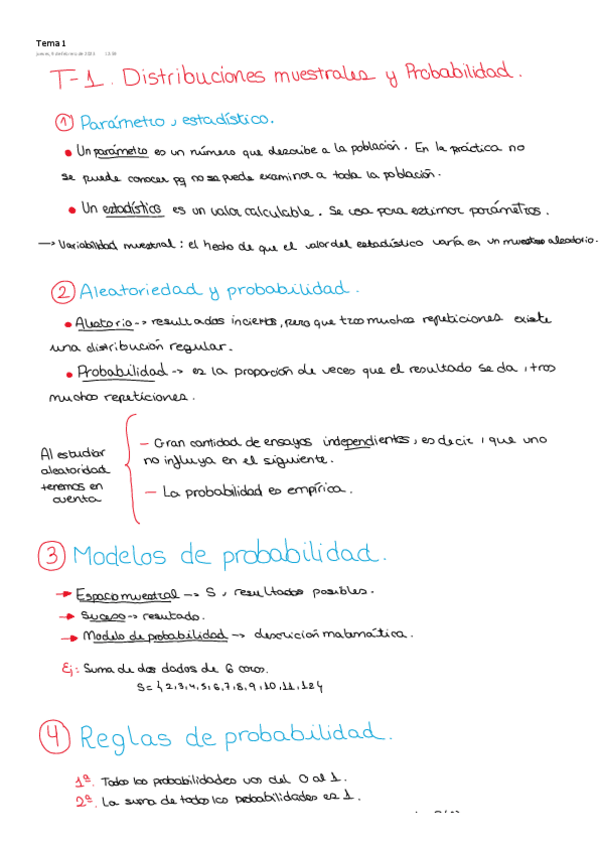 Tema 1
jueves, 9 de febrero de 2023
T-1. Distribuciones muestrales y Probabilidad.
① Parámetro, estadístico.
• Un parámetro es un número que describe a la población. En la práctica no
se puede conocer pq no se puede examinar a toda la población.
• Un estadístico es un valor calculable. Se usa para estimar parámetros.
→ Variabilidad muestral: el hecho de que el valor del estadístico varía en un muestreo aleatorio.
② Aleatoriedad y probabilidad.
• Aleatorio → resultados inciertos, pero que tras muchas repeticiones existe
una distribución regular.
• Probabilidad → es la proporción de veces que el resultado se da, tras
muchas repeticiones.
Al estudiar
aleatoridad
tenemos en
cuenta
— Gran cantidad de ensayos independientes, es decir, que uno
no influya en el siguiente.
— La probabilidad es empírica.
③ Modelos de probabilidad.
→ Espacio muestral → S, resultados posibles.
→ Suceso → resultado.
→ Modelo de probabilidad → descrición matemática.
Ej: Suma de dos dados de 6 caras.
S = {2,3,4,5,6,7,8,9,10,11,12}
④ Reglas de probabilidad.
1ª. Todas las probabilidades van del 0 al 1.
2ª. La suma de todas las probabilidades es 1.